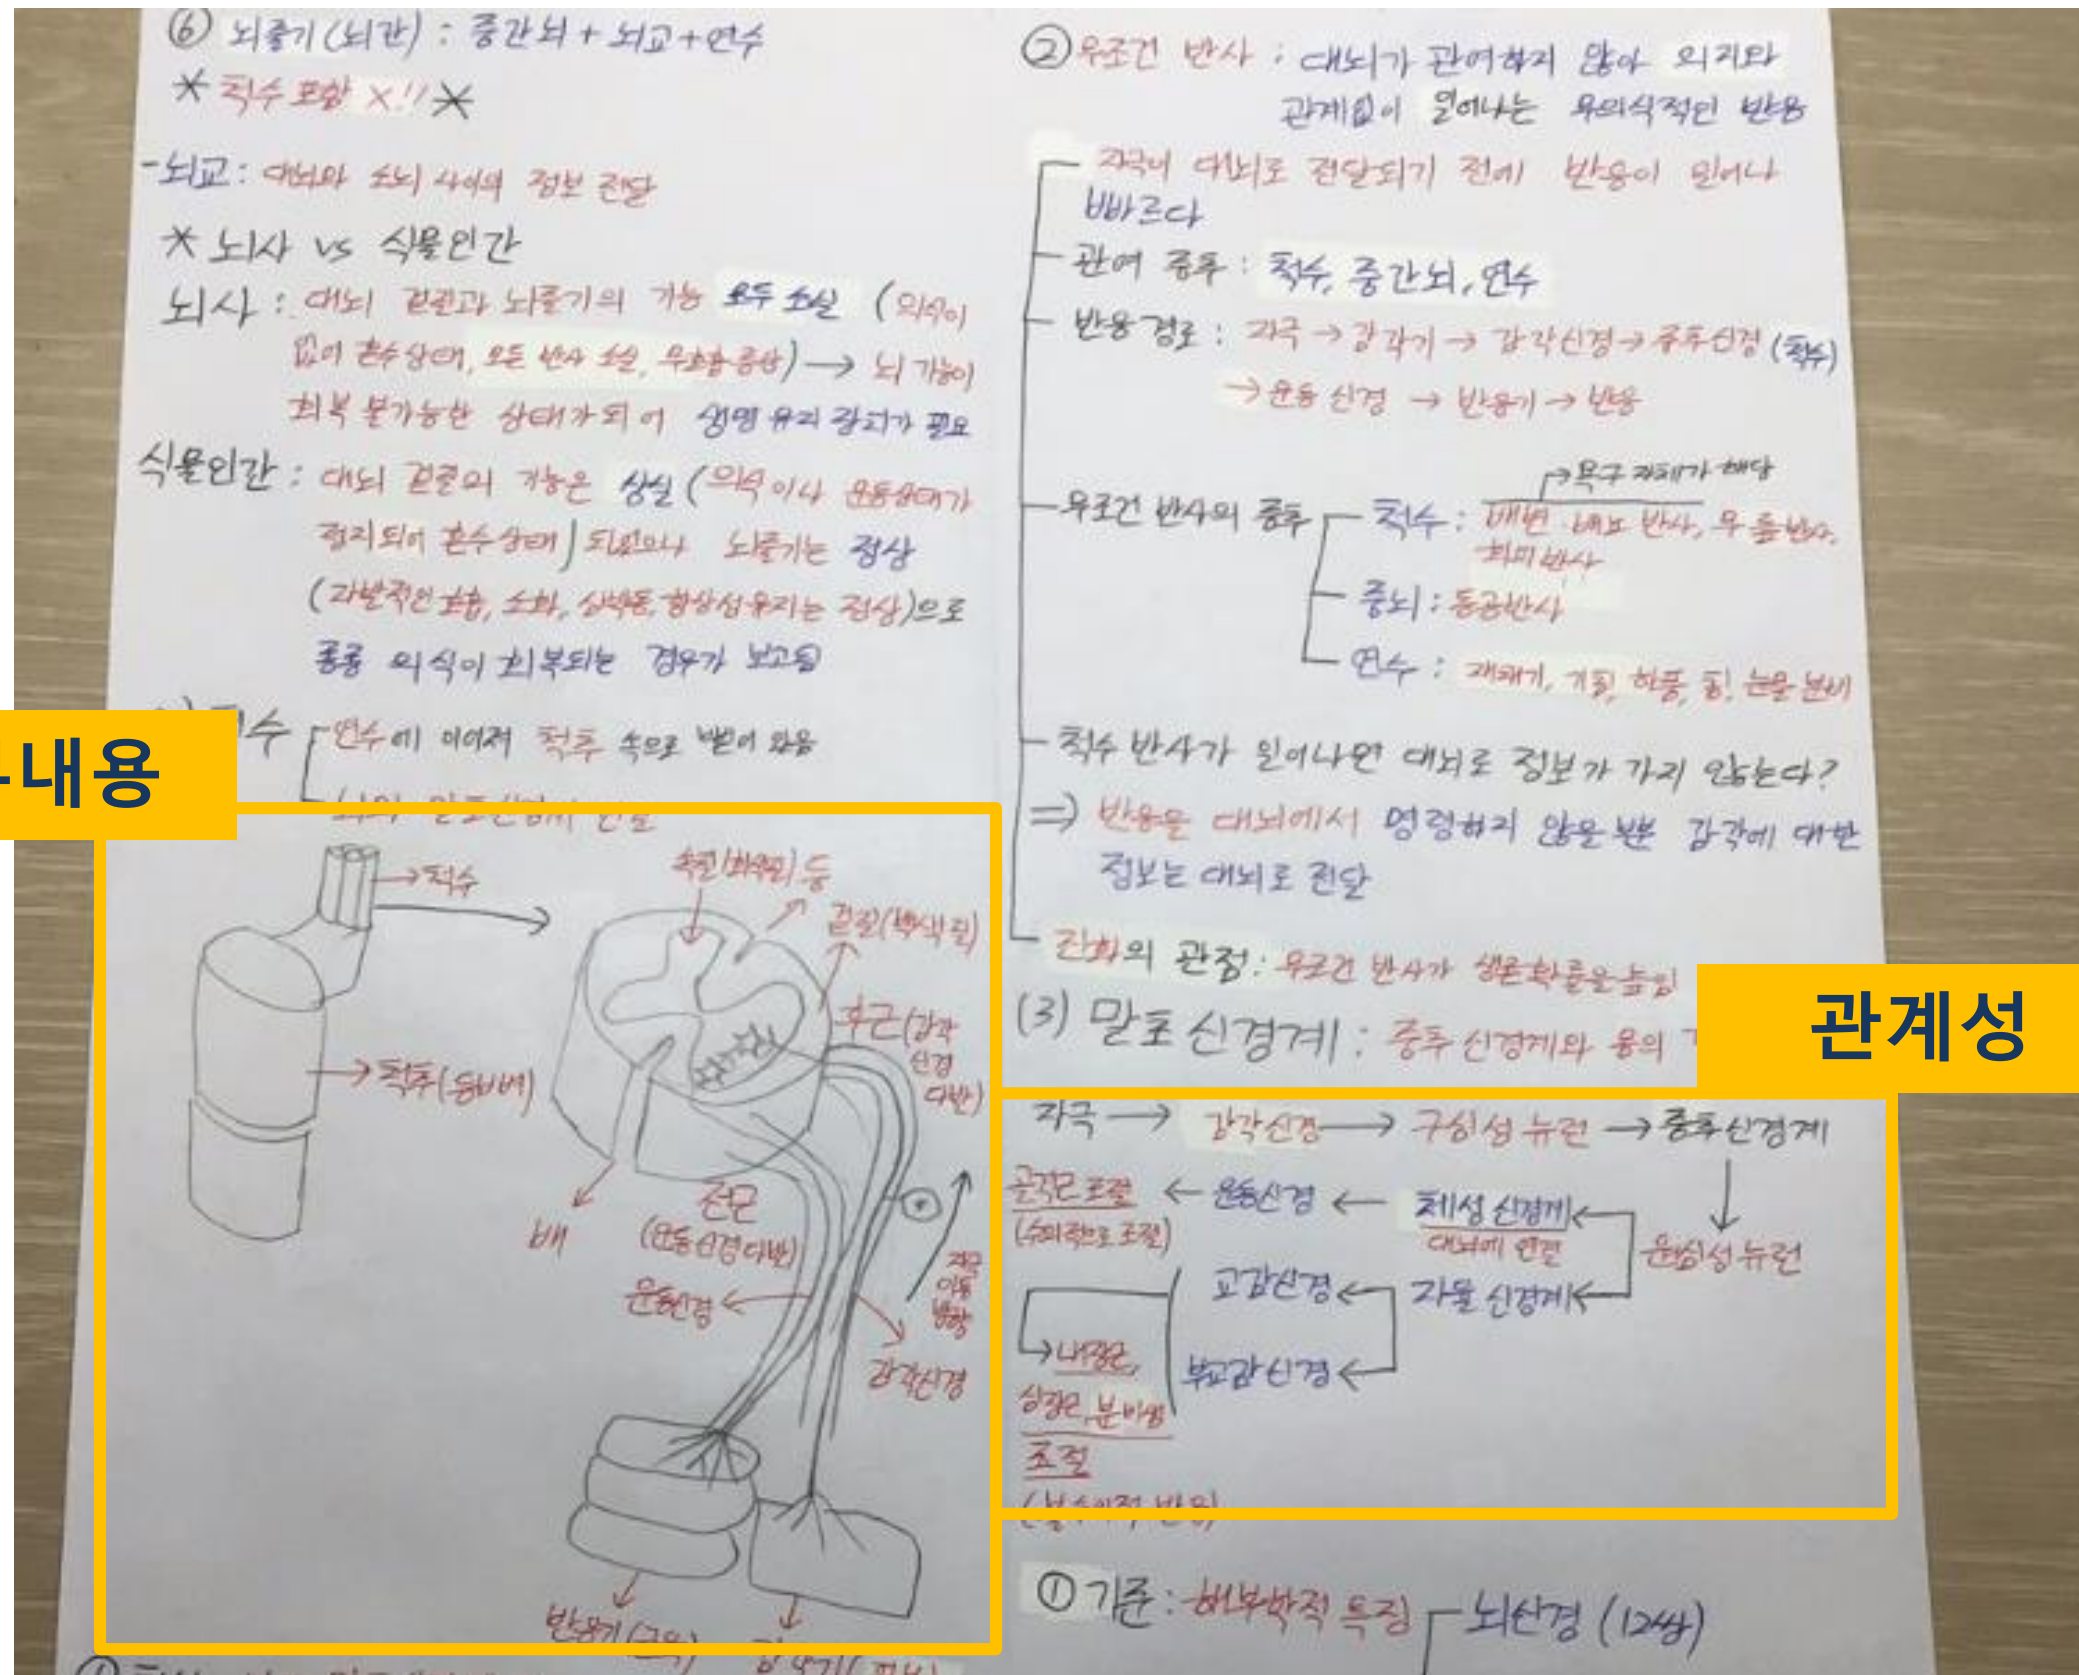 ⑥ 뇌줄기(뇌간) : 중간뇌 + 뇌교 + 연수
* 척수 포함 X!! *
- 뇌교 : 대뇌와 소뇌 사이의 정보 전달
* 뇌사 vs 식물인간
뇌사 : 대뇌 겉질과 뇌줄기의 기능 모두 소실 (의식이
없어 혼수상태, 모든 반사 소실, 무호흡증상) → 뇌 기능이
회복 불가능한 상태가 되어 생명 유지 장치가 필요
식물인간 : 대뇌 겉질의 기능은 상실 (의식이나 운동상태가
정지되어 혼수상태) 되었으나 뇌줄기는 정상
(자발적인 호흡, 소화, 심박동, 항상성유지는 정상)으로
종종 의식이 회복되는 경우가 보고됨
연수에 이어져 척추 속으로 뻗어 있음
내용
→ 척수
속질(회색질) 등
겉질(백색질)
후근(감각
신경
다발)
→ 척추(등뼈)
배
전근
(운동신경다발)
운동신경
자극
이동
방향
감각신경
반응기(근육)
② 무조건 반사 : 대뇌가 관여하지 않아 의지와
관계없이 일어나는 무의식적인 반응
자극이 대뇌로 전달되기 전에 반응이 일어나
빠르다
관여 중추 : 척수, 중간뇌, 연수
반응경로 : 자극 → 감각기 → 감각신경 → 중추신경 (척수)
→ 운동 신경 → 반응기 → 반응
→ 욕구 자체가 해당
무조건 반사의 중추 척수 : 배변·배뇨 반사, 무릎반사,
회피반사
중뇌 : 동공반사
연수 : 재채기, 기침, 하품, 침, 눈물 분비
척수 반사가 일어나면 대뇌로 정보가 가지 않는다?
⇒ 반응을 대뇌에서 명령하지 않을 뿐 감각에 대한
정보는 대뇌로 전달
진화의 관점 : 무조건 반사가 생존확률을 높임
(3) 말초 신경계 : 중추 신경계와 몸의
관계성
자극 → 감각신경 → 구심성 뉴런 → 중추신경계
골격근 조절 ← 운동신경 ← 체성 신경계
(수의적으로 조절) 대뇌에 연관 원심성 뉴런
교감신경 ← 자율 신경계
→ 내장근, 부교감신경
심장근, 분비샘
조절
① 기준 : 해부학적 특징 뇌신경 (12쌍)